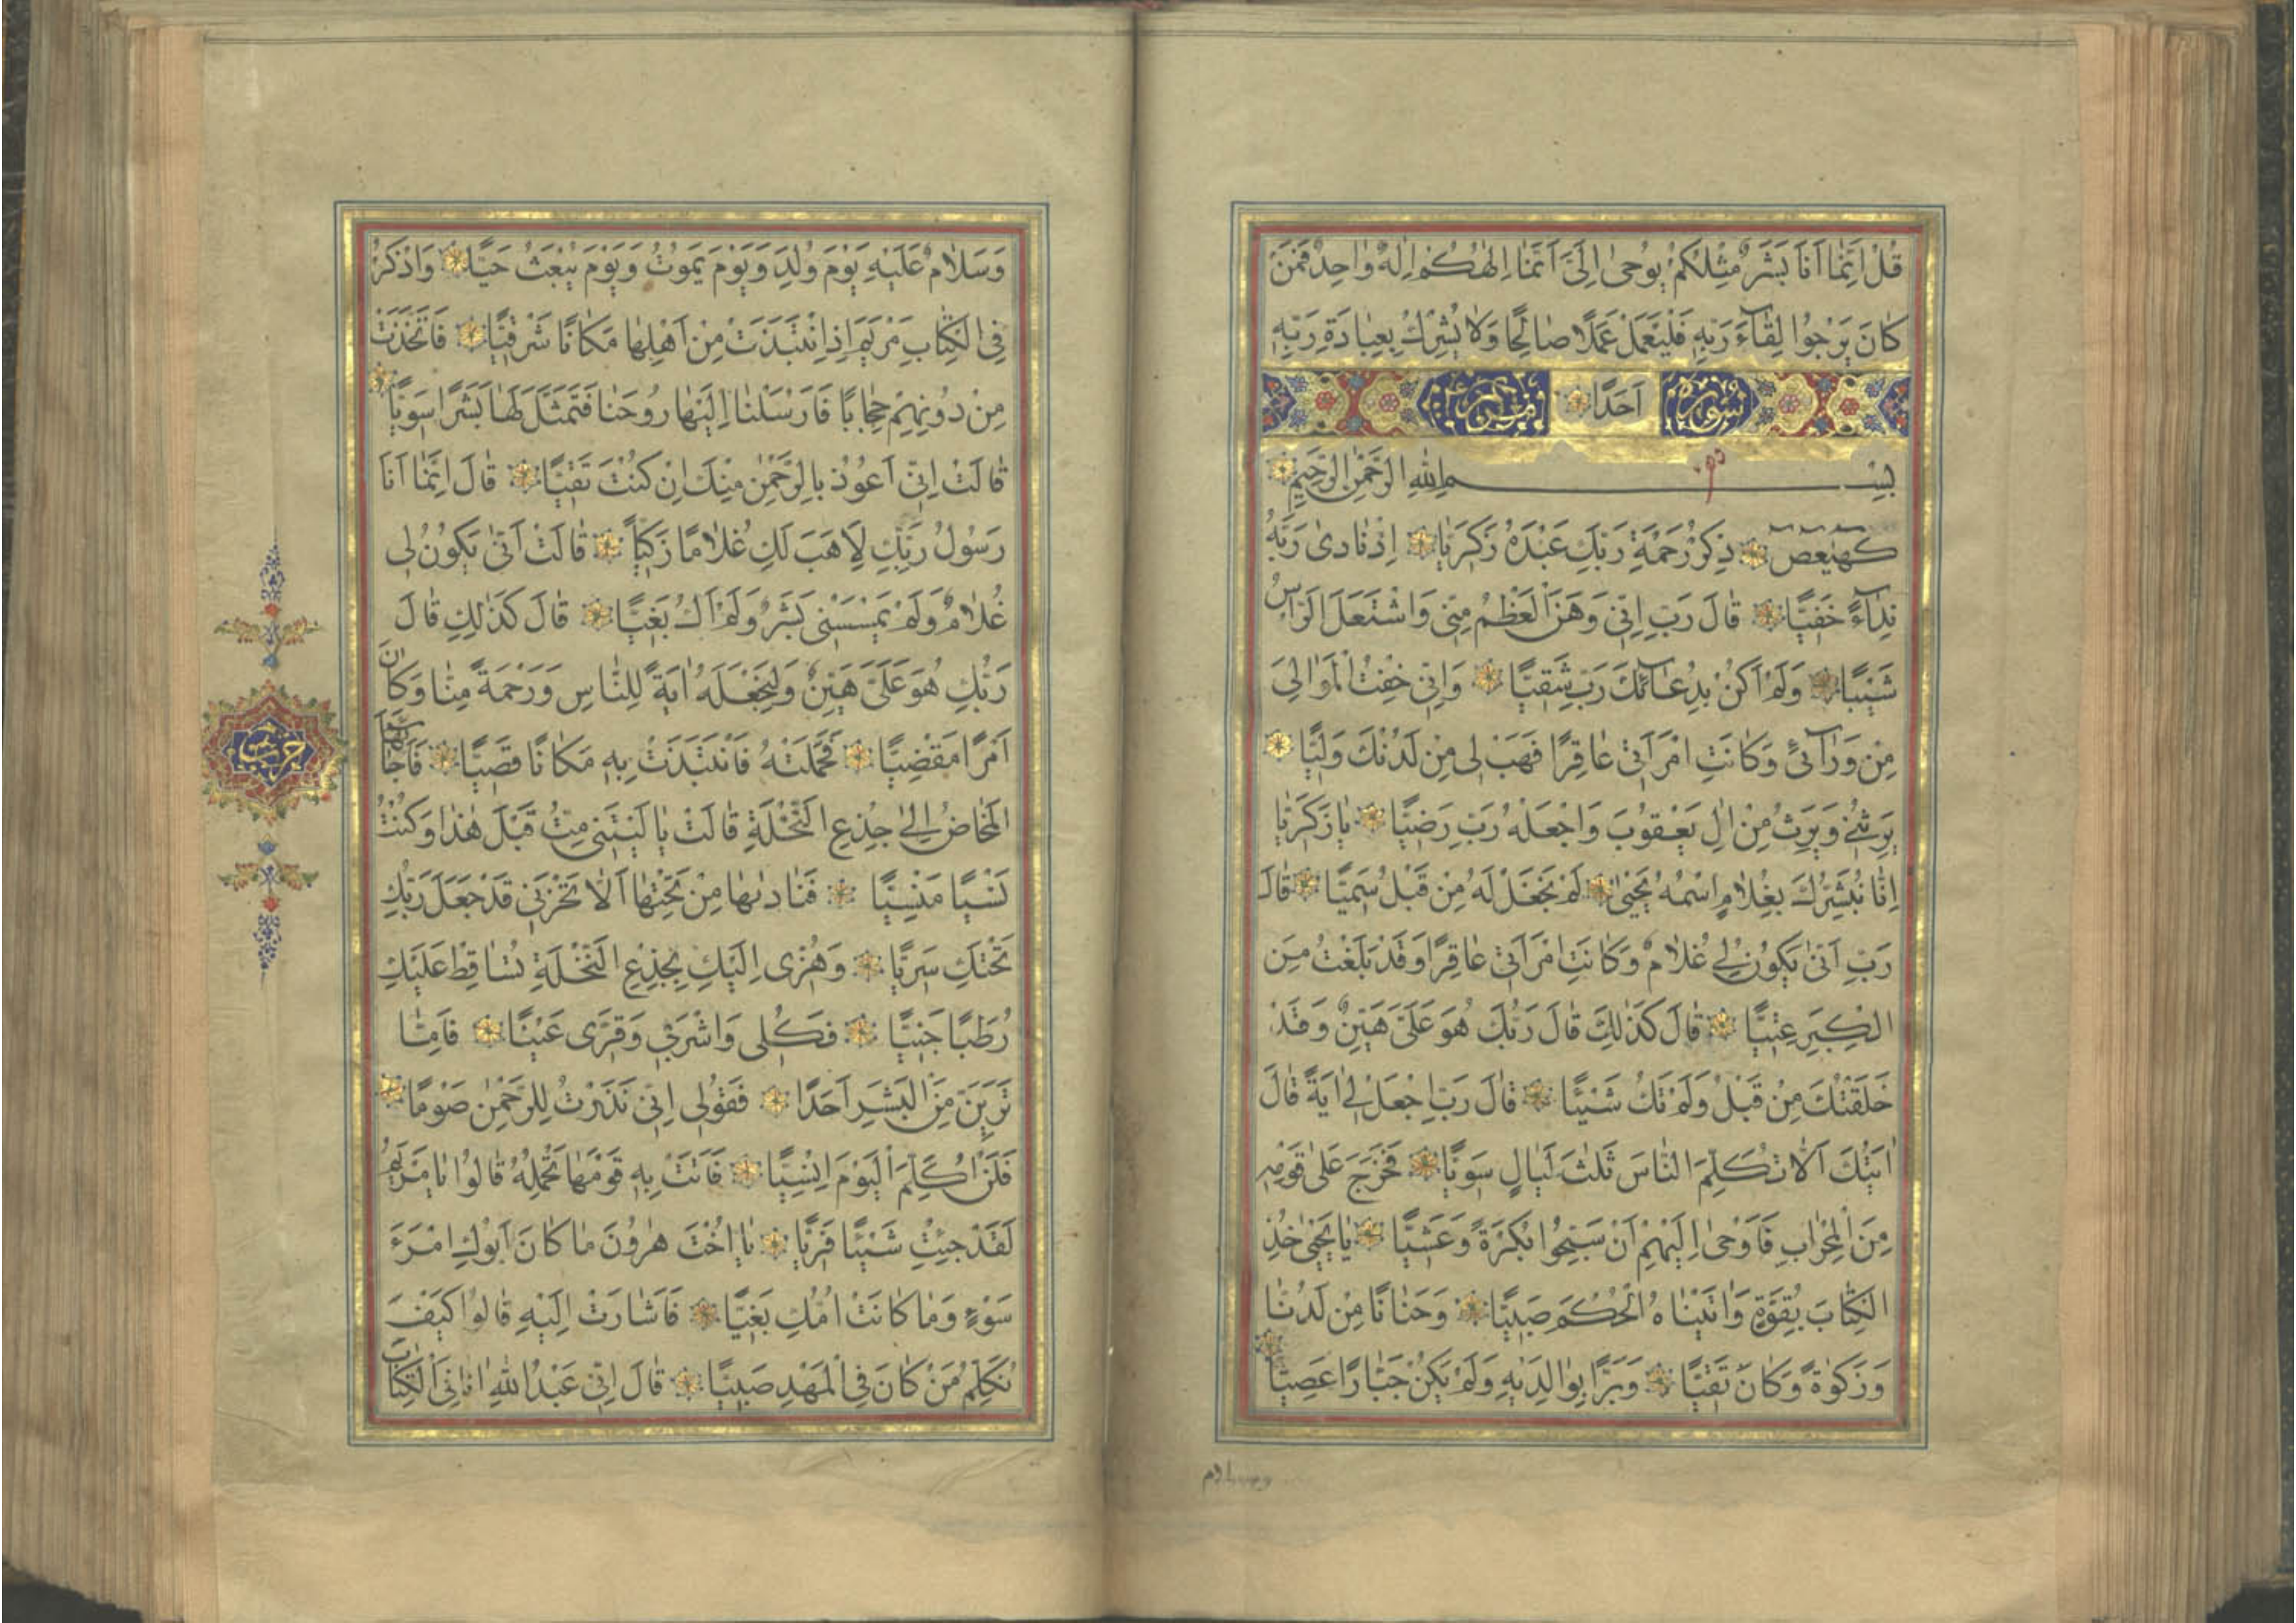 قُلْ اِنَّمَا اَنَا بَشَرٌ مِثْلُكُمْ يُوحٰى اِلَىَّ اَنَّمَا اِلٰهُكُمْ اِلٰهٌ وَاحِدٌ فَمَنْ
كَانَ يَرْجُوا لِقَاءَ رَبِّهِ فَلْيَعْمَلْ عَمَلًا صَالِحًا وَلَا يُشْرِكْ بِعِبَادَةِ رَبِّهِ
سورة اَحَدًا مريم
بِسْمِ اللّٰهِ الرَّحْمٰنِ الرَّحِيمِ
كهيعص ذِكْرُ رَحْمَةِ رَبِّكَ عَبْدَهُ زَكَرِيَّا اِذْ نَادٰى رَبَّهُ
نِدَاءً خَفِيًّا قَالَ رَبِّ اِنِّى وَهَنَ الْعَظْمُ مِنِّى وَاشْتَعَلَ الرَّاْسُ
شَيْبًا وَلَمْ اَكُنْ بِدُعَائِكَ رَبِّ شَقِيًّا وَاِنِّى خِفْتُ الْمَوَالِىَ
مِنْ وَرَآئِى وَكَانَتِ امْرَاَتِى عَاقِرًا فَهَبْ لِى مِنْ لَدُنْكَ وَلِيًّا
يَرِثُنِى وَيَرِثُ مِنْ اٰلِ يَعْقُوبَ وَاجْعَلْهُ رَبِّ رَضِيًّا يَا زَكَرِيَّا
اِنَّا نُبَشِّرُكَ بِغُلَامٍ اسْمُهُ يَحْيٰى لَمْ نَجْعَلْ لَهُ مِنْ قَبْلُ سَمِيًّا قَالَ
رَبِّ اَنّٰى يَكُونُ لِى غُلَامٌ وَكَانَتِ امْرَاَتِى عَاقِرًا وَقَدْ بَلَغْتُ مِنَ
الْكِبَرِ عِتِيًّا قَالَ كَذٰلِكَ قَالَ رَبُّكَ هُوَ عَلَىَّ هَيِّنٌ وَقَدْ
خَلَقْتُكَ مِنْ قَبْلُ وَلَمْ تَكُ شَيْئًا قَالَ رَبِّ اجْعَلْ لِى اٰيَةً قَالَ
اٰيَتُكَ اَلَّا تُكَلِّمَ النَّاسَ ثَلٰثَ لَيَالٍ سَوِيًّا فَخَرَجَ عَلٰى قَوْمِهِ
مِنَ الْمِحْرَابِ فَاَوْحٰى اِلَيْهِمْ اَنْ سَبِّحُوا بُكْرَةً وَعَشِيًّا يَا يَحْيٰى خُذِ
الْكِتَابَ بِقُوَّةٍ وَاٰتَيْنَاهُ الْحُكْمَ صَبِيًّا وَحَنَانًا مِنْ لَدُنَّا
وَزَكٰوةً وَكَانَ تَقِيًّا وَبَرًّا بِوَالِدَيْهِ وَلَمْ يَكُنْ جَبَّارًا عَصِيًّا
وسلام
وَسَلَامٌ عَلَيْهِ يَوْمَ وُلِدَ وَيَوْمَ يَمُوتُ وَيَوْمَ يُبْعَثُ حَيًّا وَاذْكُرْ
فِى الْكِتَابِ مَرْيَمَ اِذِ انْتَبَذَتْ مِنْ اَهْلِهَا مَكَانًا شَرْقِيًّا فَاتَّخَذَتْ
مِنْ دُونِهِمْ حِجَابًا فَاَرْسَلْنَا اِلَيْهَا رُوحَنَا فَتَمَثَّلَ لَهَا بَشَرًا سَوِيًّا
قَالَتْ اِنِّى اَعُوذُ بِالرَّحْمٰنِ مِنْكَ اِنْ كُنْتَ تَقِيًّا قَالَ اِنَّمَا اَنَا
رَسُولُ رَبِّكِ لِاَهَبَ لَكِ غُلَامًا زَكِيًّا قَالَتْ اَنّٰى يَكُونُ لِى
غُلَامٌ وَلَمْ يَمْسَسْنِى بَشَرٌ وَلَمْ اَكُ بَغِيًّا قَالَ كَذٰلِكِ قَالَ
رَبُّكِ هُوَ عَلَىَّ هَيِّنٌ وَلِنَجْعَلَهُ اٰيَةً لِلنَّاسِ وَرَحْمَةً مِنَّا وَكَانَ
اَمْرًا مَقْضِيًّا فَحَمَلَتْهُ فَانْتَبَذَتْ بِهِ مَكَانًا قَصِيًّا فَاَجَاءَهَا
الْمَخَاضُ اِلٰى جِذْعِ النَّخْلَةِ قَالَتْ يَا لَيْتَنِى مِتُّ قَبْلَ هٰذَا وَكُنْتُ
نَسْيًا مَنْسِيًّا فَنَادٰيهَا مِنْ تَحْتِهَا اَلَّا تَحْزَنِى قَدْ جَعَلَ رَبُّكِ
تَحْتَكِ سَرِيًّا وَهُزِّى اِلَيْكِ بِجِذْعِ النَّخْلَةِ تُسَاقِطْ عَلَيْكِ
رُطَبًا جَنِيًّا فَكُلِى وَاشْرَبِى وَقَرِّى عَيْنًا فَاِمَّا
تَرَيِنَّ مِنَ الْبَشَرِ اَحَدًا فَقُولِى اِنِّى نَذَرْتُ لِلرَّحْمٰنِ صَوْمًا
فَلَنْ اُكَلِّمَ الْيَوْمَ اِنْسِيًّا فَاَتَتْ بِهِ قَوْمَهَا تَحْمِلُهُ قَالُوا يَا مَرْيَمُ
لَقَدْ جِئْتِ شَيْئًا فَرِيًّا يَا اُخْتَ هٰرُونَ مَا كَانَ اَبُوكِ امْرَءَ
سَوْءٍ وَمَا كَانَتْ اُمُّكِ بَغِيًّا فَاَشَارَتْ اِلَيْهِ قَالُوا كَيْفَ
نُكَلِّمُ مَنْ كَانَ فِى الْمَهْدِ صَبِيًّا قَالَ اِنِّى عَبْدُ اللّٰهِ اٰتَانِىَ الْكِتَابَ